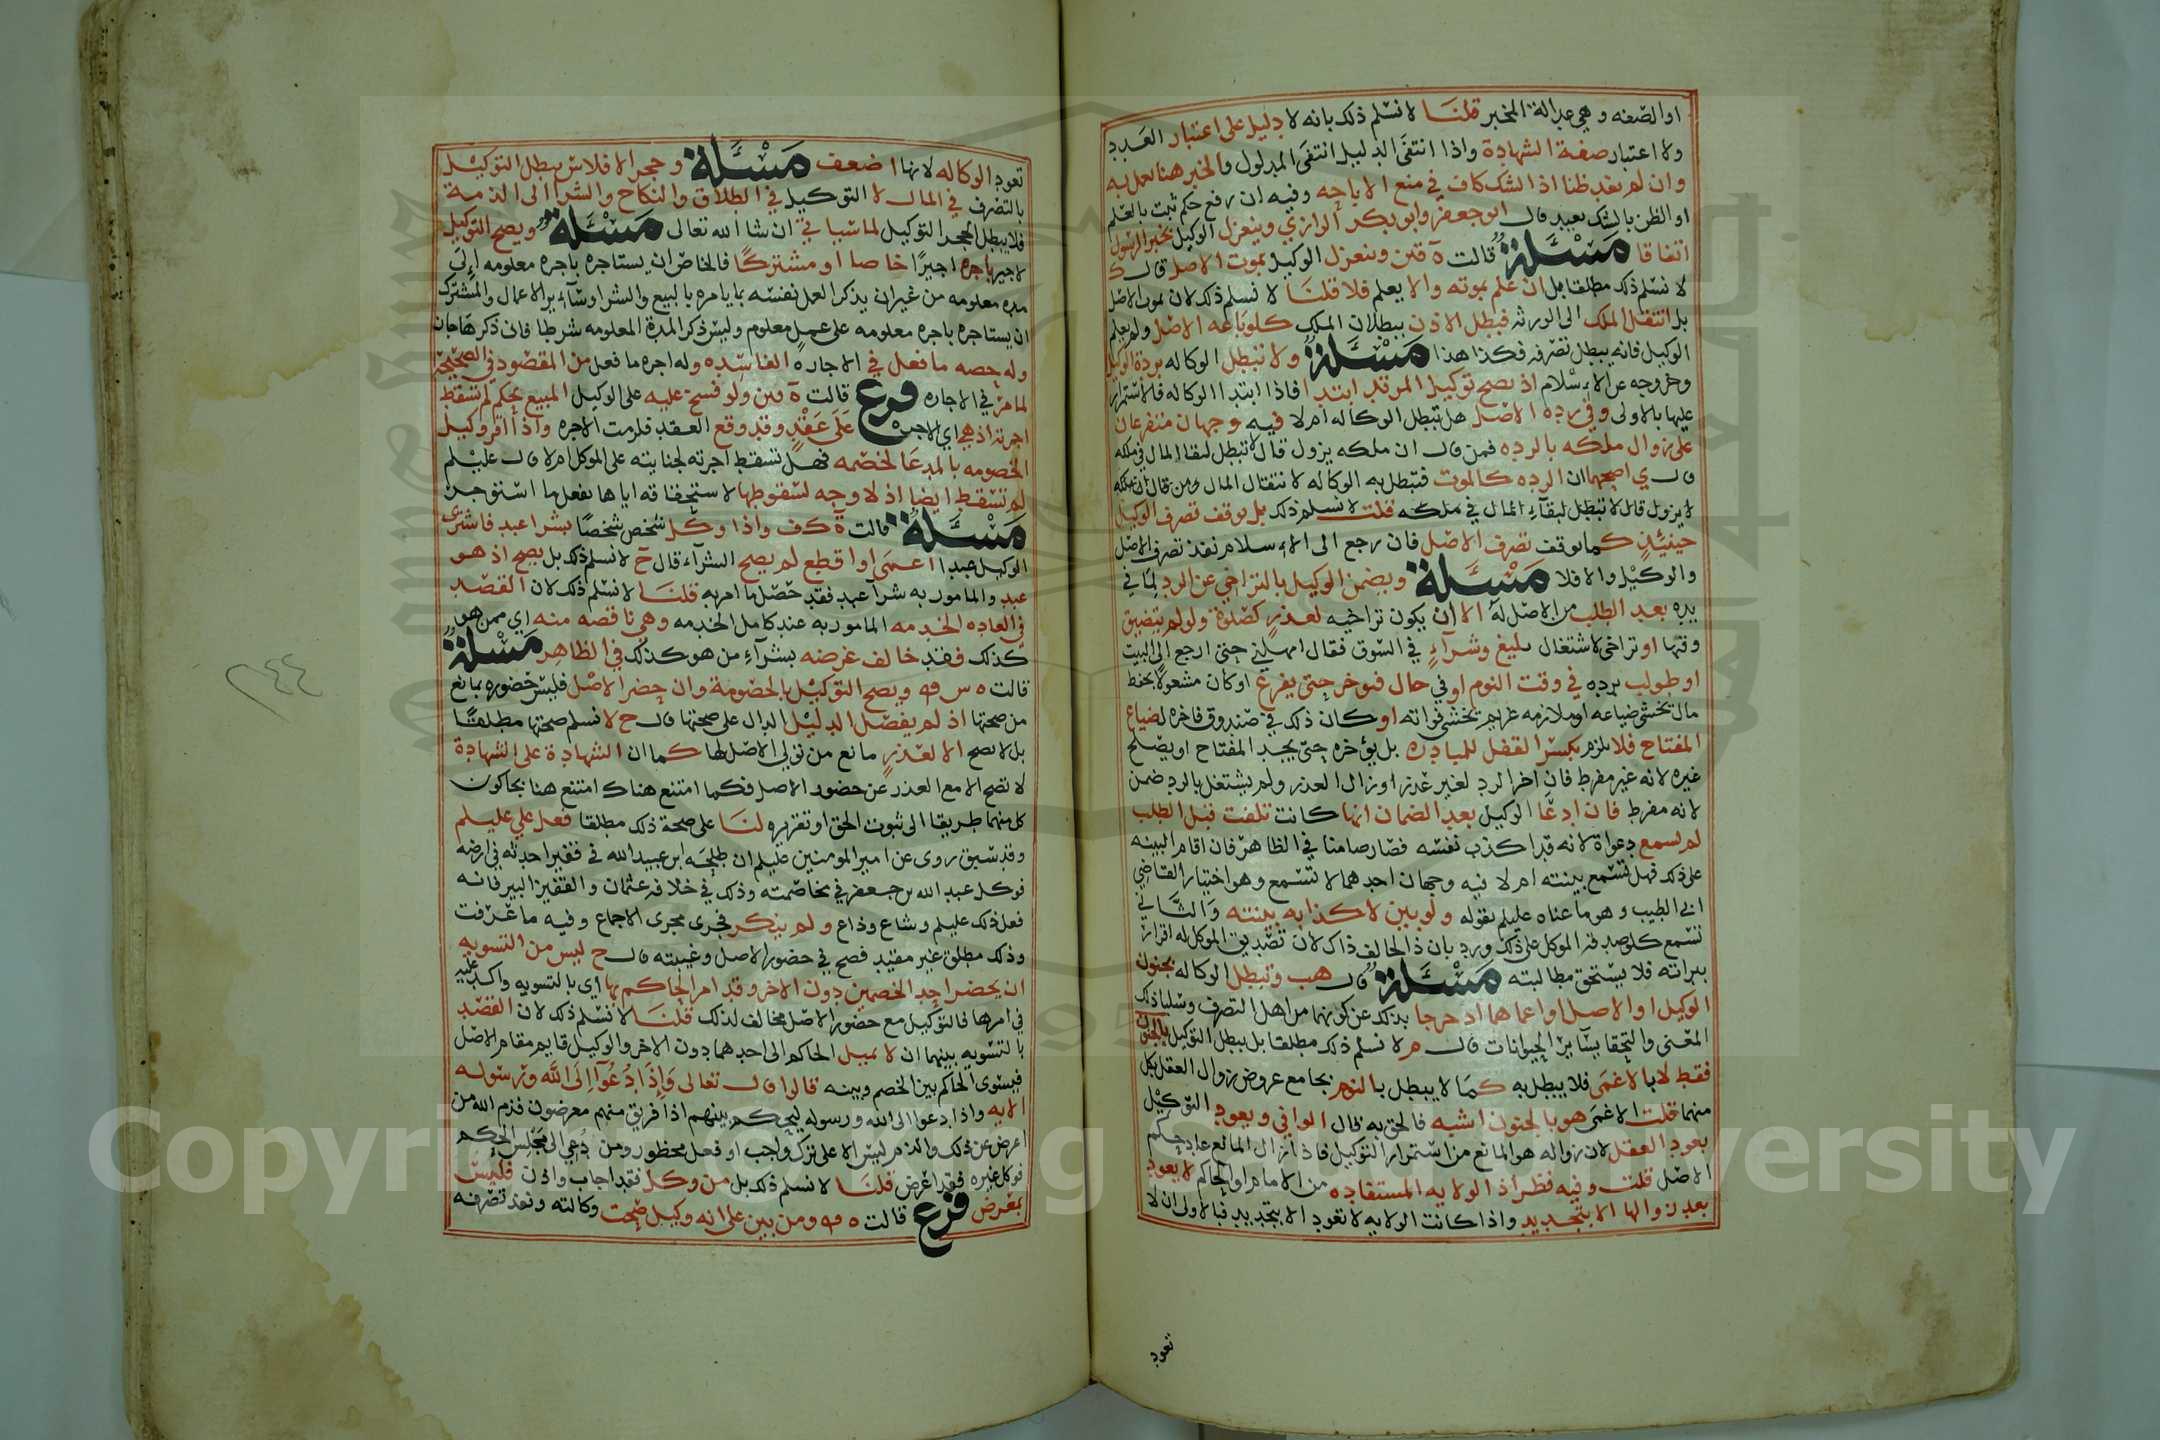 او الصفه وهي عدالة المخبر قلنا لا نسلم ذلك بانه لا دليل على اعتبار العدد
ولا اعتبار صفة الشهادة واذا انتفى الدليل انتفى المدلول والخبر هنا يعمل به
وان لم يفد ظنا اذ الشك كاف في منع الاباحه وفيه ان رفع حكم ثبت بالعلم
او الظن بالشك بعيد قال ابو جعفر وابو بكر الرازي وينعزل الوكيل بخبر الرسول
اتفاقا مسئلة قالت ة قين وينعزل الوكيل بموت الاصل قال ك
لا نسلم ذلك مطلقا بل ان علم بموته والا يعلم فلا قلنا لا نسلم ذلك لان بموت الاصل
بل انتقل الملك الى الورثه فبطل الاذن ببطلان الملك كلو باعه الاصل ولم يعلم
الوكيل فانه يبطل تصرفه فكذا هذا مسئلة ولا تبطل الوكاله بردة الوكيل
وخروجه عن الاسلام اذ يصح توكيل المرتد ابتدا فاذا ابتدا الوكاله فالاستمرار
عليها بالاولى وفي رده الاصل هل تبطل الوكاله ام لا فيه وجهان متفرعان
على زوال ملكه بالرده فمن قال ان ملكه يزول قال لا تبطل لبقا المال في ملكه
قال ي اصحهما ان الرده كالموت فتبطل به الوكاله لانتقال المال ومن قال ان ملكه
لا يزول قال لا تبطل لبقاء المال في ملكه قلت لا نسلم ذلك بل يوقف تصرف الوكيل
حينئذ كما يوقف تصرف الاصل فان رجع الى الاسلام نفذ تصرف الاصل
والوكيل والا فلا مسئلة ويضمن الوكيل بالتراخي عن الرد لما في
يده بعد الطلب من الاصل له الا ان يكون تراخيه لعذر كصلوة ولو لم يتضيق
وقتها او تراخى لاشتغال ببيع وشراء في السوق فقال امهلني حتى ارجع الى البيت
او طولب برده في وقت النوم او في حال فيوخر حتى يفرغ او كان مشغولا بحفظ
مال تخشى ضياعه او ملازمه غريم يخشى فواته او كان ذلك في صندوق فاخره لضياع
المفتاح فلا يلزم بكسر القفل للمبادره بل يؤخره حتى يجد المفتاح او يصلح
غيره لانه غير مفرط فان اخر الرد لغير عذر او زال العذر ولم يشتغل بالرد ضمن
لانه مفرط فان ادعا الوكيل بعد الضمان انها كانت تلفت قبل الطلب
لم تسمع دعواة لانه قد اكذب نفسه فصار ضامنا في الظاهر فان اقام البينه
على ذلك فهل تسمع بينته ام لا فيه وجهان احدهما لا تسمع وهو اختيار القاضي
ابي الطيب وهو ما عناه عليلم بقوله ولو بين لاكذابه بينته والثاني
تسمع كلو صدقه الموكل على ذلك ورد بان ذا الحالف ذاك لان تصديق الموكل له اقرار
ببراته فلا يستحق مطالبته مسئلة قال هب وتبطل الوكاله بجنون
الوكيل او الاصل او اغماهما اذ خرجا بذلك عن كونهما من اهل التصرف وسلبا ذلك
المعنى والتحقا بساير الحيوانات قال م لا نسلم ذلك مطلقا بل يبطل التوكيل بالجنون
فقط لا بالاغمى فلا يبطل به كما لا يبطل بالنوم بجامع عروض زوال العقل بكل
منهما قلت الاغمى هو بالجنون اشبه فالحق به قال الوافي ويعود التوكيل
بعود العقل لان زواله هو المانع من استمرار التوكيل فاذا زال المانع عاد حكم
الاصل قلت وفيه نظر اذ الولايه المستفاده من الامام او الحاكم لا يعود
بعد زوالها الا بتجديد واذا كانت الولايه لا تعود الا بتجديد فبالاولى ان لا
تعود
تعود الوكاله لانها اضعف مسئلة وحجر الافلاس يبطل التوكيل
بالتصرف في المال لا التوكيل في الطلاق والنكاح والشرا الى الذمة
فلا يبطل الحجر التوكيل لما سياتي ان شا الله تعالى مسئلة ويصح التوكيل
لاجير باجره اجيرا خاصا او مشتركا فالخاص ان يستاجره باجره معلومه الى
مده معلومه من غير ان يذكر العمل نفسه بما يامره بالبيع والشرا وساير الاعمال والمشترك
ان يستاجره باجره معلومه على عمل معلوم وليس ذكر المدة المعلومه شرطا فان ذكرها جاز
وله حصه ما فعل في الاجاره الفاسده وله اجره ما فعل من المقصود في الصحيحة
لما مر في الاجاره فرع قالت ة قين ولو فسخ عليه على الوكيل المبيع بحكم لم تسقط
اجرته اذ هي اي الاجره على عقد وقد وقع العقد فلزمت الاجره واذا اقر وكيل
الخصومه بالمدعا لخصمه فهل تسقط اجرته لجنايته على الموكل ام لا قال عليلم
لم تسقط ايضا اذ لا وجه لسقوطها لاستحقاقه اياها بفعل ما استوجر
مسئلة قالت ة كف واذا وكل شخص شخصا بشرا عبد فاشترى
الوكيل عبدا اعمى او اقطع لم يصح الشراء قال ح لا نسلم ذلك بل يصح اذ هو
عبد والمامور به شرا عبد فقد حصل ما امر به قلنا لا نسلم ذلك لان القصد
في العاده الخدمه المامور به عند كامل الخدمه وهي ناقصه منه اي ممن هو
كذلك فقد خالف غرضه بشراء من هو كذلك في الظاهر مسئلة
قالت ه س ويصح التوكيل بالخصومة وان حضر الاصل فليس حضوره بمانع
من صحتها اذ لم يفصل الدليل الدال على صحتها قال ح لا نسلم صحتها مطلقا
بل لا يصح الا لعذر مانع من تولي الاصل لها كما ان الشهادة على الشهادة
لا تصح الا مع العذر عن حضور الاصل فكما امتنع هناك امتنع هنا بجا كون
كل منهما طريقا الى ثبوت الحق او تقريره لنا على صحة ذلك مطلقا فعل علي عليلم
وقد سبق روى عن امير المومنين عليلم ان طلحه ابن عبيد الله في فقير احدثه في ارضه
فوكل عبد الله بن جعفر في مخاصمته وذلك في خلافه عثمان والفقير البير فانه
فعل ذلك عليلم وشاع وذاع ولم ينكر فجرى مجرى الاجماع وفيه ما عرفت
وذلك مطلق غير مقيد فصح في حضور الاصل وغيبته قال ح ليس من التسويه
ان يحضر احد الخصمين دون الاخر وقد امر الحاكم بها اي بالتسويه واكد عليه
في امرها فالتوكيل مع حضور الاصل مخالف لذلك قلنا لا نسلم ذلك لان القصد
بالتسويه بينهما ان لا يميل الحاكم الى احدهما دون الاخر والوكيل قايم مقام الاصل
فيسوى الحاكم بين الخصم وبينه قالوا قال تعالى واذا دعوا الى الله ورسوله
الايه واذا دعوا الى الله ورسوله ليحكم بينهم اذا فريق منهم معرضون فذم الله من
اعرض عن ذلك والذم ليس الا على ترك واجب او فعل محظور ومن دعي الى مجلس الحكم
فوكل غيره فقد اعرض قلنا لا نسلم ذلك بل من وكل فقد اجاب واذن فليس
بمعرض فرع قالت ه ومن بين على انه وكيل صحت وكالته ونفذ تصرفه
٢٤٤
Copyright © King Saud University